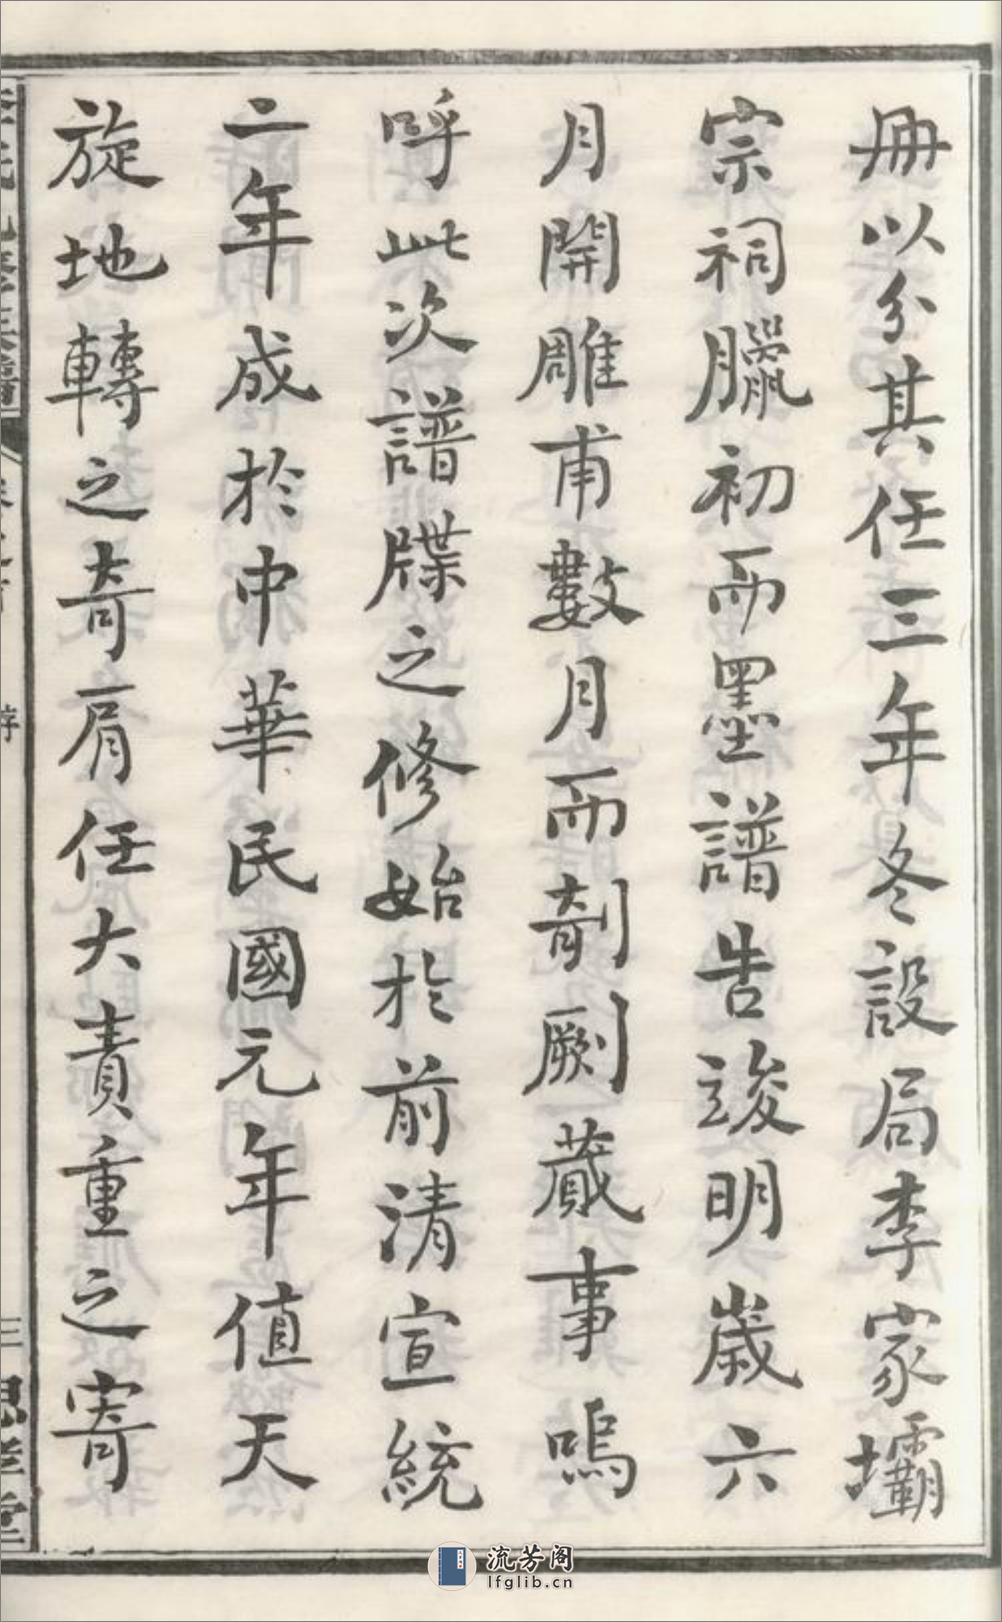 冊以分其任三年冬設局李家壩
宗祠臘初而墨譜告竣明歲六
月開雕甫數月而剞劂蕆事嗚
呼此次譜牒之修始於前清宣統
二年成於中華民國元年值天
旋地轉之奇肩任大責重之寄
序
三
思孝堂
流芳阁
lfglib.cn